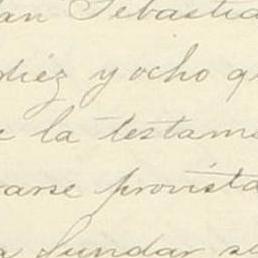 San Sebastia
diez y ocho q
e la testame
arse provista
a fundar se